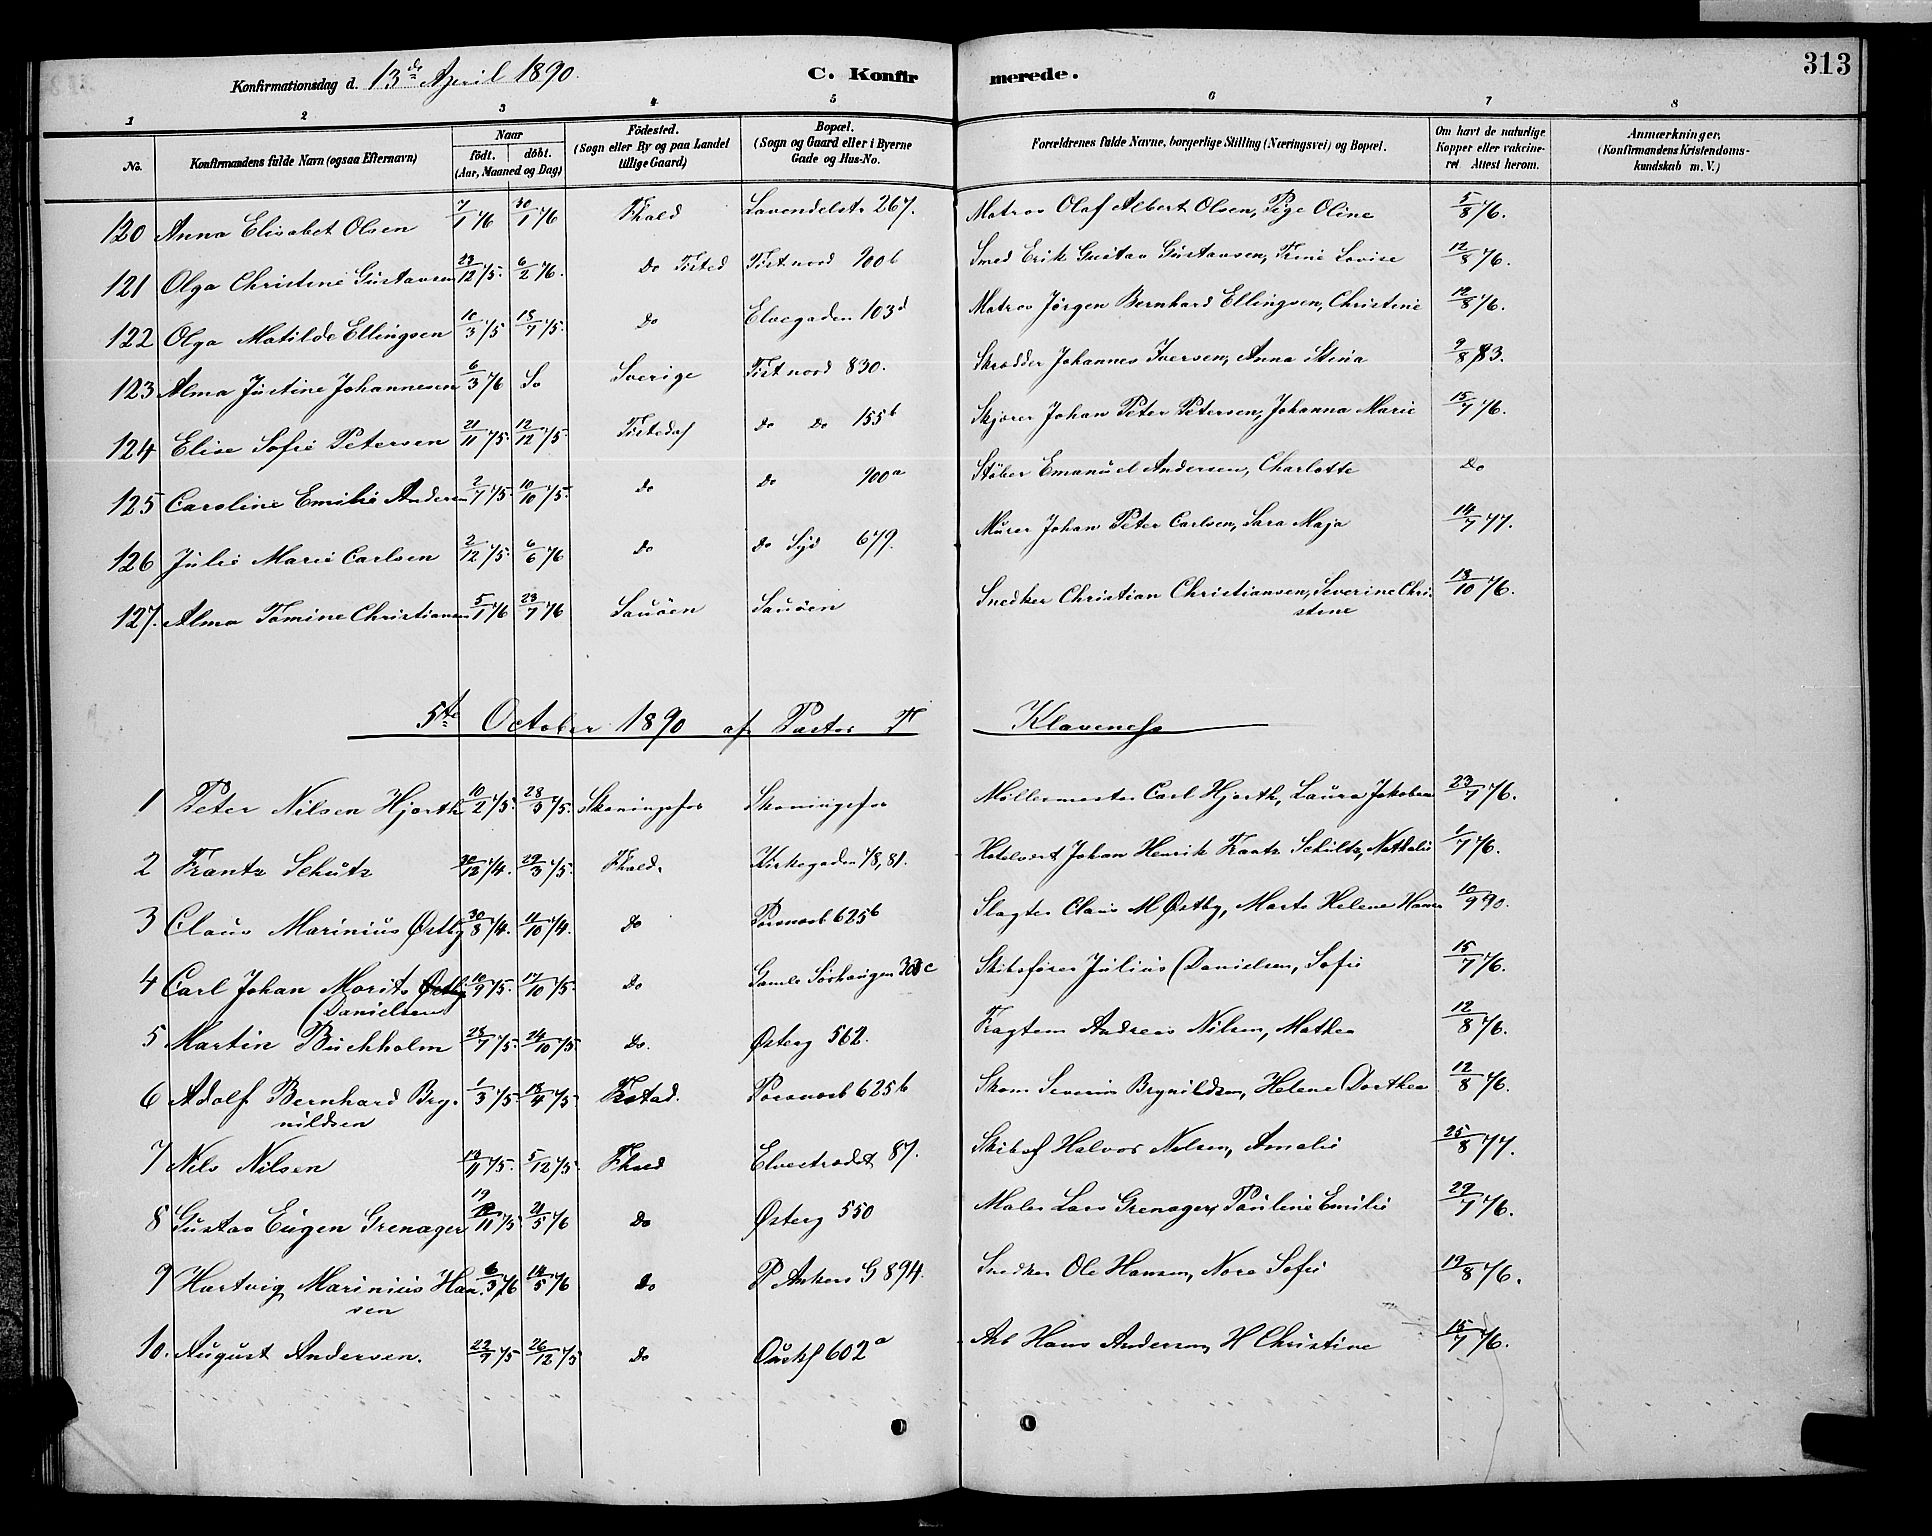 313
Konfirmationsdag d. 13de April 1890. C. Konfirmerede.
1 2 3 4 5 6 7 8
No. Konfirmandens fulde Navn (ogsaa Efternavn) Naar födt. döbt. (Aar, Maaned og Dag) Födested. (Sogn eller By og paa Landet tillige Gaard) Bopæl. (Sogn og Gaard eller i Byerne Gade og Hus-No. Forældrenes fulde Navne, borgerlige Stilling (Næringsvei) og Bopæl. Om havt de naturlige Kopper eller vakcineret Attest herom. Anmærkninger, (Konfirmandens Kristendomskundskab m. V.)
120 Anna Elisabet Olsen 7/1 76 30/1 76 Fhald Lavendelstr 267. Matros Olaf Albert Olsen, Pige Oline 5/8 76.
121 Olga Christine Gustavsen 23/12 75. 6/2 76. Do Tisted Tist nord 900b Smed Erik Gustav Gustavsen, Trine Lovise 12/8 76.
122 Olga Matilde Ellingsen 10/3 75 18/7 75. Do Elvegaden 103d Matros Jörgen Bernhard Ellingsen, Christine 12/8 76.
123 Alma Justine Johannesen 6/3 76 So Sverige Tist nord 830. Skrædder Johannes Iversen, Anna Stina 9/8 83.
124 Elise Sofie Petersen 21/11 75. 12/12 75. Tistedal Do Do 155b Skjærer Johan Peter Petersen, Johanna Marie 15/7 76.
125 Caroline Emilie Andersen 2/7 75. 10/10 75. Do Do 900a Stöber Emanuel Andersen, Charlotte Do
126 Julie Marie Carlsen 2/12 75. 6/6 76 Do Do Syd 679. Murer Johan Peter Carlsen, Sara Maja 14/7 77.
127. Alma Tomine Christiansen 5/1 76 23/7 76 Sauöen Sauöen Snedker Christian Christiansen, Severine Christine 13/10 76.
5te October 1890 af Pastor T Klaveness
1 Peter Nilsen Hjorth 10/2 75. 28/3 75. Skoningsfos Skoningsfos Möllermester Carl Hjorth, Laura Jakobsen 23/7 76.
2 Frantz Schütz 20/12 74. 29/3 75. Fhald. Kirkegaden 78, 81. Hotelvert Johan Henrik Frantz Schültz, Nathalie 1/7 76.
3 Claus Marinius Østby 30/8 74. 11/10 74. Do Porsnesb 625b Slagter Claus M Østby, Marte Helene Hansen 10/9 90.
4 Carl Johan Morits Østby Danielsen 10/9 75. 17/10 75. Do Gamle Sörhaugen 308c Skibsförer Julius Danielsen, Sofie 15/7 76.
5 Martin Buchholm 28/7 75. 24/10 75 Do. Østerg 562. Fragtem Andreas Nilsen, Mathea 12/8 76.
6 Adolf Bernhard Brynildsen 1/3 75 18/4 75 Fstad. Porsnesb 625b Skom Severin Brynildsen, Helene Dorthea 12/8 76.
7 Nils Nilsen 13/11 75. 5/12 75 Fhald Elvestrædet 87. Skibsf Halvor Nilsen, Amalie 25/8 77.
8 Gustav Eugen Grenager 19/11 75 21/5 76 Do Østerg 550 Maler Lars Grenager, Pauline Emilie 29/7 76.
9 Hartvig Marinius Hansen 6/3 76 14/5 76 Do P Ankers G 894. Snedker Ole Hansen, Nora Sofie 19/8 76.
10. August Andersen. 22/9 75 26/12 75 Do 602a Arb Hans Andersen, H Christine 15/7 76.